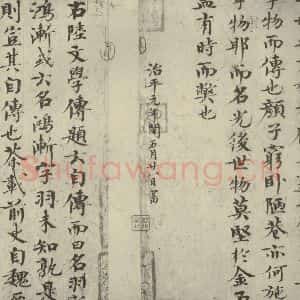 乎物而傳也顏子窮卧陋巷亦何施
乎物耶而名光後世物莫堅於金石
蓋有時而弊也
治平元年閏五月廿八日書
右陸文學傳題云自傳而曰名羽
鴻漸或云名鴻漸字羽未知孰是
則豈其自傳也茶載前史自魏
Shufawang.cn